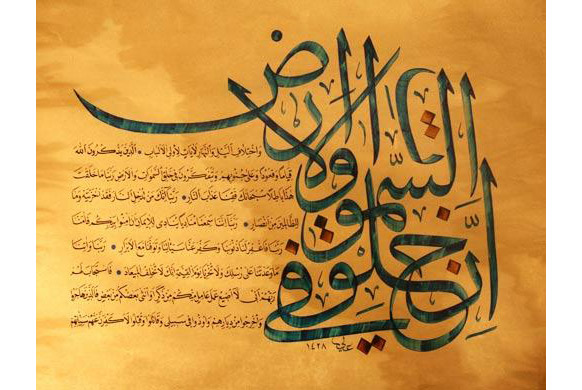 إن في خلق السموات والأرض
واختلاف الليل والنهار لآيات لأولي الألباب * الذين يذكرون الله
قياما وقعودا وعلى جنوبهم ويتفكرون في خلق السموات والأرض ربنا ما خلقت
هذا باطلا سبحانك فقنا عذاب النار * ربنا إنك من تدخل النار فقد أخزيته وما
للظالمين من أنصار * ربنا إننا سمعنا مناديا ينادي للإيمان أن آمنوا بربكم فآمنا
ربنا فاغفر لنا ذنوبنا وكفر عنا سيئاتنا وتوفنا مع الأبرار * ربنا وآتنا
ما وعدتنا على رسلك ولا تخزنا يوم القيامة إنك لا تخلف الميعاد * فاستجاب لهم
ربهم أني لا أضيع عمل عامل منكم من ذكر أو أنثى بعضكم من بعض فالذين هاجروا
وأخرجوا من ديارهم وأوذوا في سبيلي وقاتلوا وقتلوا لأكفرن عنهم سيئاتهم
١٤٢٨